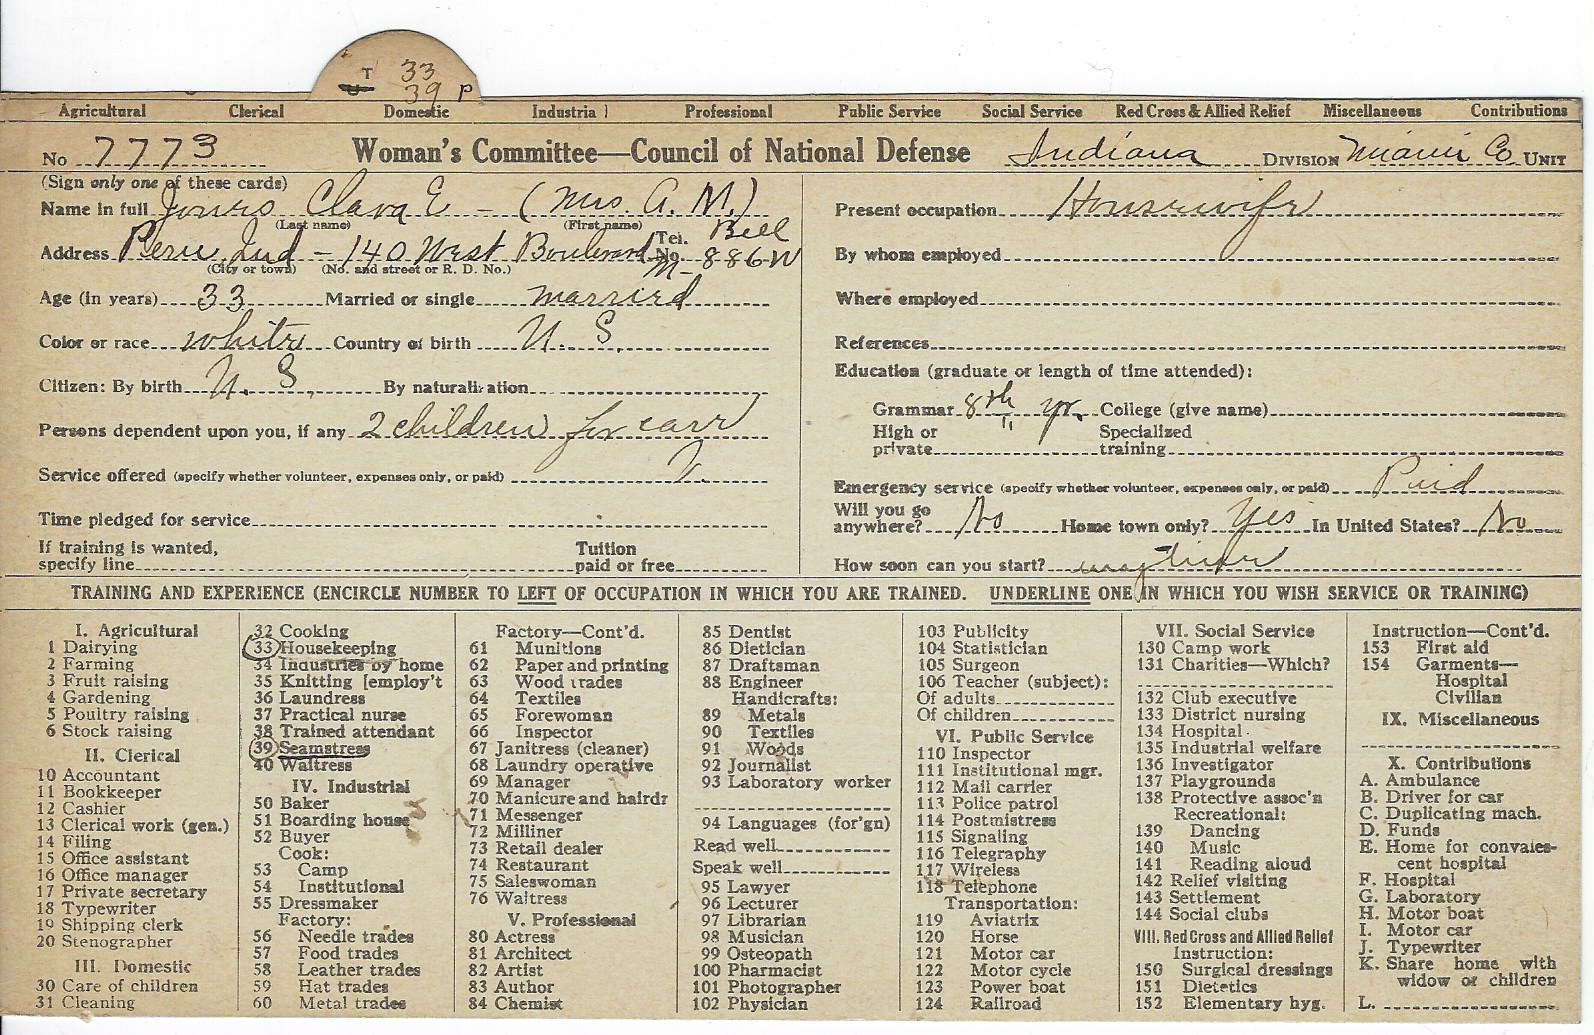 T 33
39 P
Agricultural Clerical Domestic Industrial Professional Public Service Social Service Red Cross & Allied Relief Miscellaneous Contributions
No 7773 Woman's Committee—Council of National Defense Indiana DIVISION Miami Co UNIT
(Sign only one of these cards)
Name in full Jones Clara E - (Mrs. A. M.)
(Last name) (First name)
Address Peru, Ind - 140 West Boulevard Tel. No. Bell M-886W
(City or town) (No. and street or R. D. No.)
Age (in years) 33 Married or single married
Color or race white Country of birth U. S.
Citizen: By birth U. S. By naturalization
Persons dependent upon you, if any 2 children for care
Service offered (specify whether volunteer, expenses only, or paid) V.
Time pledged for service
If training is wanted,
specify line Tuition paid or free
Present occupation Housewife
By whom employed
Where employed
References
Education (graduate or length of time attended):
Grammar 8th yr. College (give name)
High or private " Specialized training
Emergency service (specify whether volunteer, expenses only, or paid) Paid
Will you go anywhere? No Home town only? Yes In United States? No
How soon can you start? anytime
TRAINING AND EXPERIENCE (ENCIRCLE NUMBER TO LEFT OF OCCUPATION IN WHICH YOU ARE TRAINED. UNDERLINE ONE IN WHICH YOU WISH SERVICE OR TRAINING)
I. Agricultural
1 Dairying
2 Farming
3 Fruit raising
4 Gardening
5 Poultry raising
6 Stock raising
II. Clerical
10 Accountant
11 Bookkeeper
12 Cashier
13 Clerical work (gen.)
14 Filing
15 Office assistant
16 Office manager
17 Private secretary
18 Typewriter
19 Shipping clerk
20 Stenographer
III. Domestic
30 Care of children
31 Cleaning
32 Cooking
33 Housekeeping
34 Industries by home
35 Knitting [employ't
36 Laundress
37 Practical nurse
38 Trained attendant
39 Seamstress
40 Waitress
IV. Industrial
50 Baker
51 Boarding house
52 Buyer
Cook:
53 Camp
54 Institutional
55 Dressmaker
Factory:
56 Needle trades
57 Food trades
58 Leather trades
59 Hat trades
60 Metal trades
Factory—Cont'd.
61 Munitions
62 Paper and printing
63 Wood trades
64 Textiles
65 Forewoman
66 Inspector
67 Janitress (cleaner)
68 Laundry operative
69 Manager
70 Manicure and hairdr
71 Messenger
72 Milliner
73 Retail dealer
74 Restaurant
75 Saleswoman
76 Waitress
V. Professional
80 Actress
81 Architect
82 Artist
83 Author
84 Chemist
85 Dentist
86 Dietician
87 Draftsman
88 Engineer
Handicrafts:
89 Metals
90 Textiles
91 Woods
92 Journalist
93 Laboratory worker
94 Languages (for'gn)
Read well
Speak well
95 Lawyer
96 Lecturer
97 Librarian
98 Musician
99 Osteopath
100 Pharmacist
101 Photographer
102 Physician
103 Publicity
104 Statistician
105 Surgeon
106 Teacher (subject):
Of adults
Of children
VI. Public Service
110 Inspector
111 Institutional mgr.
112 Mail carrier
113 Police patrol
114 Postmistress
115 Signaling
116 Telegraphy
117 Wireless
118 Telephone
Transportation:
119 Aviatrix
120 Horse
121 Motor car
122 Motor cycle
123 Power boat
124 Railroad
VII. Social Service
130 Camp work
131 Charities—Which?
132 Club executive
133 District nursing
134 Hospital
135 Industrial welfare
136 Investigator
137 Playgrounds
138 Protective assoc'n
Recreational:
139 Dancing
140 Music
141 Reading aloud
142 Relief visiting
143 Settlement
144 Social clubs
VIII. Red Cross and Allied Relief
Instruction:
150 Surgical dressings
151 Dietetics
152 Elementary hyg.
Instruction—Cont'd.
153 First aid
154 Garments—
Hospital
Civilian
IX. Miscellaneous
X. Contributions
A. Ambulance
B. Driver for car
C. Duplicating mach.
D. Funds
E. Home for convales-
cent hospital
F. Hospital
G. Laboratory
H. Motor boat
I. Motor car
J. Typewriter
K. Share home with
widow or children
L.